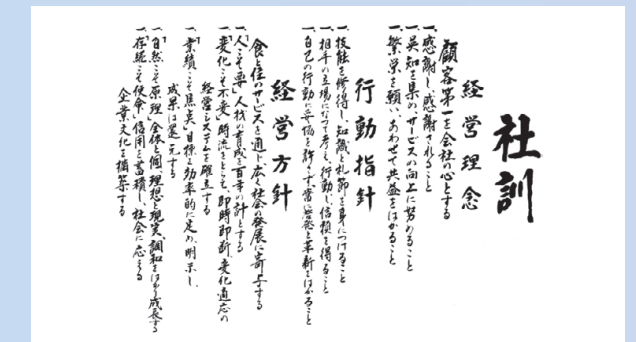 社訓
経営理念
顧客第一を会社の心とする
一、感謝し感謝されること
一、英知を集めサービスの向上に努めること
一、繁栄を願い、あわせて共益をはかること
行動指針
一、技能を修得し、知識と礼節を身につけること
一、相手の立場になって考え、行動し、信頼を得ること
一、自己の行動に妥協を許さず、常に啓発と革新をはかること
経営方針
食と住のサービスを通じ広く社会の発展に寄与する
一、「人こそ要」人材の育成を百年の計とする
一、「変化こそ不変」時流をとらえ、即時即断、変化適応の
経営システムを確立する
一、「業績こそ焦点」目標を効率的に定め、明示し、
成果は還元する
一、「自然こそ原理」全体と個、理想と現実、調和をはかり成長する
一、「存続こそ使命」信用を蓄積し、社会に応える
企業文化を構築する